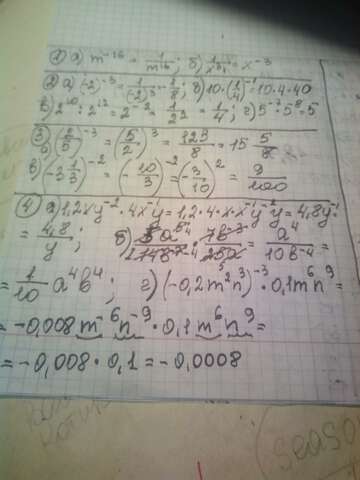 ① а) m^-16 = 1/m^16; б) 1/x^3 = x^-3
② а) (-2)^-3 = 1/(-2)^3 = -1/8; б) 10·(1/4)^-1 = 10·4=40
в) 2^10 : 2^12 = 2^-2 = 1/2^2 = 1/4; г) 5^-7·5^8=5
③ а) (2/5)^-3 = (5/2)^3 = 123/8 = 15 5/8
в) (-3 1/3)^-2 = (-10/3)^-2 = (-3/10)^2 = 9/100
④ а) 1,2xy^-2·4x^-1y = 1,2·4·x·x^-1y^-2y = 4,8y^-1=
= 4,8/y; б) = a^4/10b^-4 =
= 1/10 a^4b^4; г) (-0,2m^-2n^3)^-3·0,1m^6n^9=
= -0,008m^-6n^-9·0,1m^6n^9=
= -0,008·0,1=-0,0008